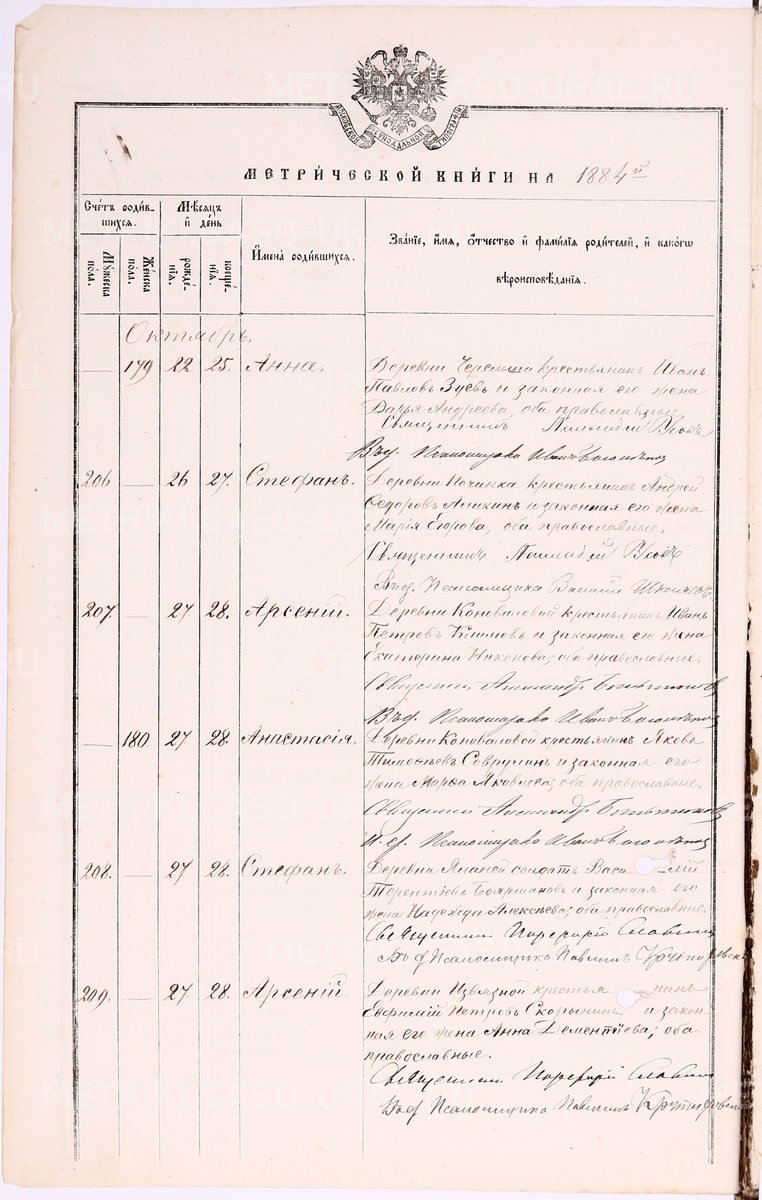 МОСКОВСКОЙ СѴНОДАЛЬНОЙ ТИПОГРАФІИ
МЕТРИ́ЧЕСКОЙ КНИ́ГИ НА 1884й
Сче́тъ роди́в-
шихся.
Му́жеска
по́ла.
Же́нска
по́ла.
Мѣ́сяцъ
и҆ де́нь
рожде́-
нїя.
креще́-
нїя.
И҆мена̀ роди́вшихся.
Зва́нїе, и҆́мя, ѻ҆́тчество и҆ фами́лїя роди́телей, и҆ како́гѡ
вѣроисповѣ́данїя.
Октябрь.
— 179 22 25. Анна. Деревни Черемша крестьянинъ Иванъ
Павловъ Зуевъ и законная его жена
Дарья Андреева, оба православные.
Священникъ
Въ д. Псаломщика Иванъ
206 — 26 27. Стефанъ. Деревни Починка крестьянинъ Андрей
Ѳедоровъ Аликинъ и законная его жена
Марія Егорова, оба православные.
Священникъ
Въ д. Псаломщика Василій
207. — 27 28. Арсеній. Деревни Коноваловой крестьянинъ Иванъ
Петровъ Климовъ и законная его жена
Екатерина Никонова; оба православные.
Священникъ Александръ
Въ д. Псаломщика Иванъ
— 180 27 28. Анастасія. Деревни Коноваловой крестьянинъ Яковъ
Тимоѳеевъ Соврулинъ и законная его
жена Марѳа Яковлева; оба православные.
Священникъ Александръ
И. д. Псаломщика Иванъ
208. — 27 28. Стефанъ. Деревни солдатъ Василій
Терентіевъ и законная его
жена Надежда Алексѣева; оба православные.
Священникъ Порфирій Славнинъ
Въ д Псаломщика Павлинъ
209. — 27 28. Арсеній Деревни Извязной крестьянинъ
Евфимій Петровъ Скорынинъ и закон-
ная его жена Анна Дементіева; оба
православные.
Священникъ Порфирій Славнинъ
Въ д Псаломщика Павлинъ